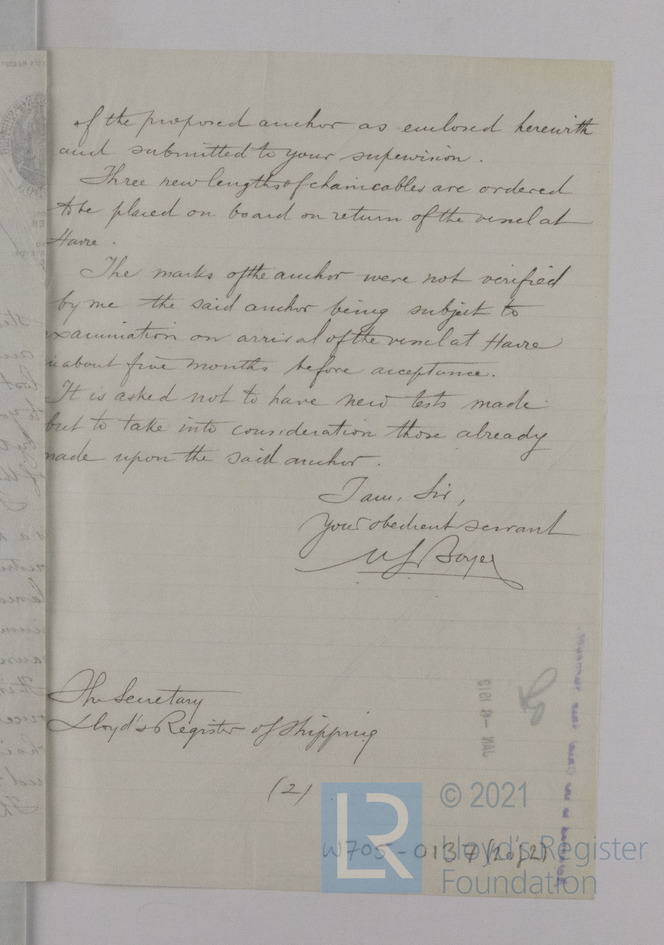 of the proposed anchor as enclosed herewith
and submitted to your supervision.
Three new lengths of chaincables are ordered
to be placed on board on return of the vessel at
Havre.
The marks of the anchor were not verified
by me the said anchor being subject to
examination on arrival of the vessel at Havre
in about five months before acceptance.
It is asked not to have new tests made
but to take into consideration those already
made upon the said anchor.
I am, Sir,
Your obedient servant
Boyer
The Secretary
Lloyd's Register of Shipping
(2)
W705-0137 (2of2)
© 2021
Lloyd's Register
Foundation
LR